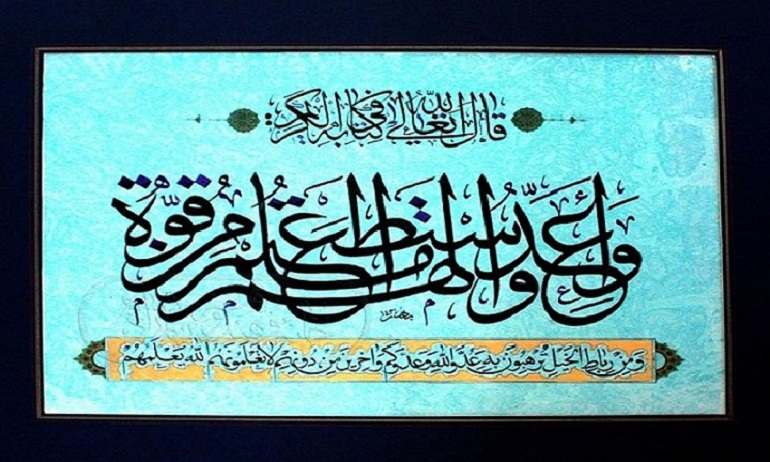 قال الله تعالى في كتابه الكريم
وَأَعِدُّوا لَهُم مَّا اسْتَطَعْتُم مِّن قُوَّةٍ
ومن رباط الخيل ترهبون به عدو الله وعدوكم وآخرين من دونهم لا تعلمونهم الله يعلمهم